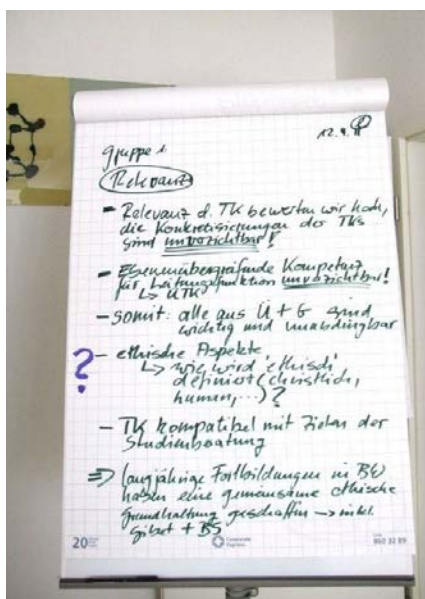 12.9.
Gruppe 1
Relevanz
- Relevanz d. TK bewerten wir hoch,
die Konkretisierungen der TKs
sind unverzichtbar!
- Ebenenübergreifende Kompetenz
für Leitungsfunktion unverzichtbar!
↳ ÜTK
- somit: alle aus Ü + G sind
wichtig und unabdingbar
? - ethische Aspekte
↳ wie wird 'ethisch'
definiert (christlich,
human, ...)?
- TK kompatibel mit Zielen der
Studienberatung
⇒ langjährige Fortbildungen in BW
haben eine gemeinsame ethische
Grundhaltung geschaffen → inkl.
+ BS
20
Corporate
Express